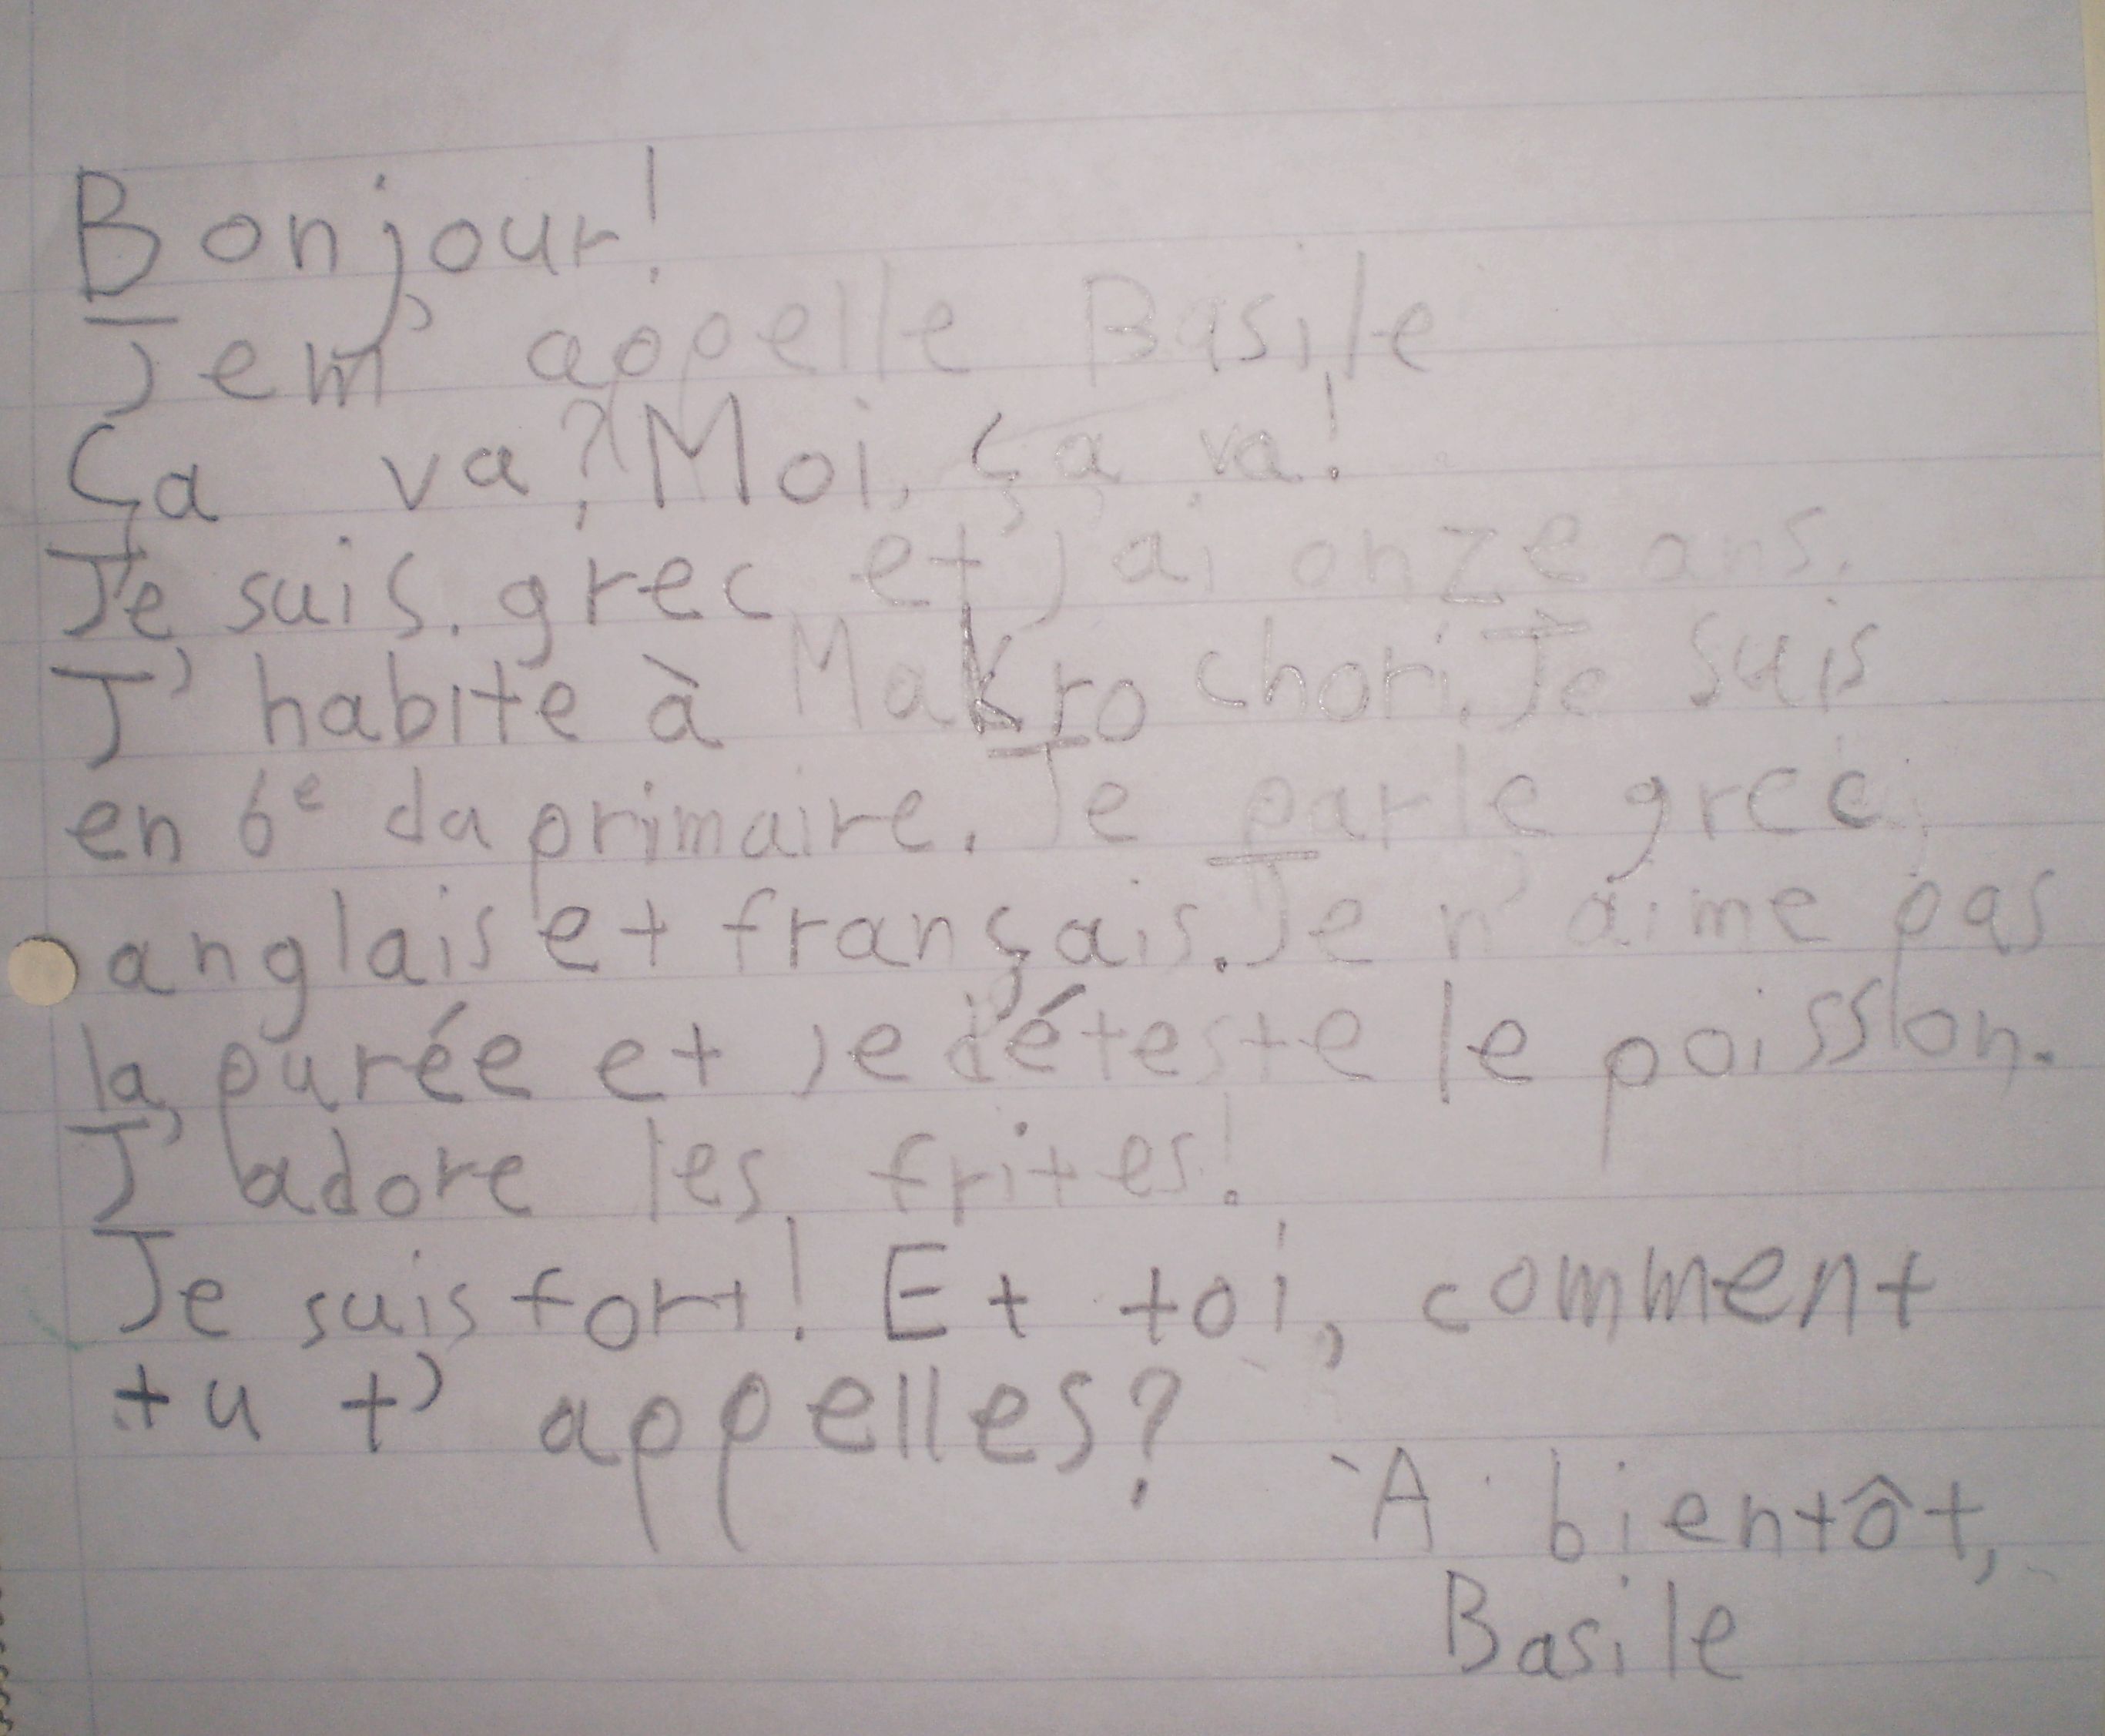 Bonjour!
Je m'appelle Basile
Ça va? Moi, ça va!
Je suis grec et j'ai onze ans.
J'habite à Makrochori. Je suis
en 6e da primaire. Je parle grec,
anglais et français. Je n'aime pas
la purée et je déteste le poisson.
J'adore les frites!
Je suis fort! Et toi, comment
tu t'appelles?
À bientôt,
Basile